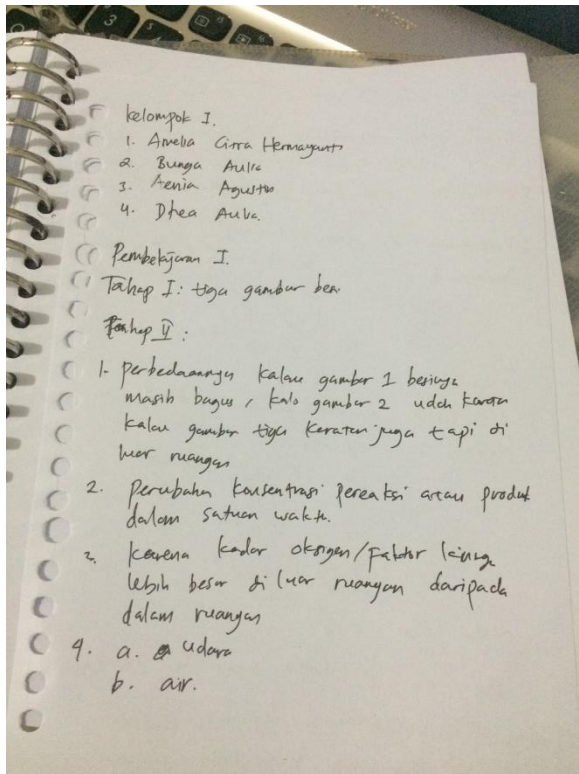 Kelompok I.
1. Amelia Citra Hermayanti
2. Bunga Aulia
3. Agustin
4. Dhea Aulia.
Pembelajaran I.
Tahap I: tiga gambar besi
Tahap II :
1. perbedaannya kalau gambar 1 besinya
masih bagus, kalo gambar 2 udah karatan
kalau gambar tiga karatan juga tapi di
luar ruangan
2. perubahan konsentrasi pereaksi atau produk
dalam satuan waktu.
3. karena kadar oksigen/faktor lainnya
lebih besar di luar ruangan daripada
dalam ruangan
4. a. udara
b. air.
3